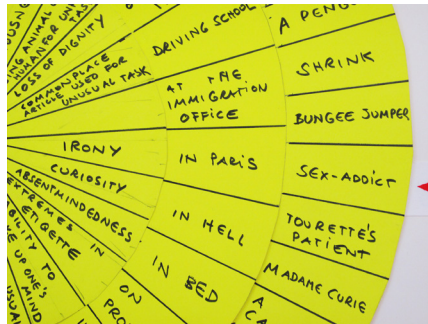 ING ANIMAL
HUMAN FOR UN
TAS
LOSS OF DIGNITY
COMMONPLACE
ARTICLE USED FOR
UNUSUAL TASK
IRONY
CURIOSITY
ABSENTMINDEDNESS
EXTREMES IN
ETIGETTE
BILITY TO
KE UP ONE'S
MIND
USUAL
DRIVING SCHOOL
AT THE
IMMIGRATION
OFFICE
IN PARIS
IN HELL
IN BED
ON
PRO
A PENG
SHRINK
BUNGEE JUMPER
SEX-ADDICT
TOURETTE'S
PATIENT
MADAME CURIE
A
CA